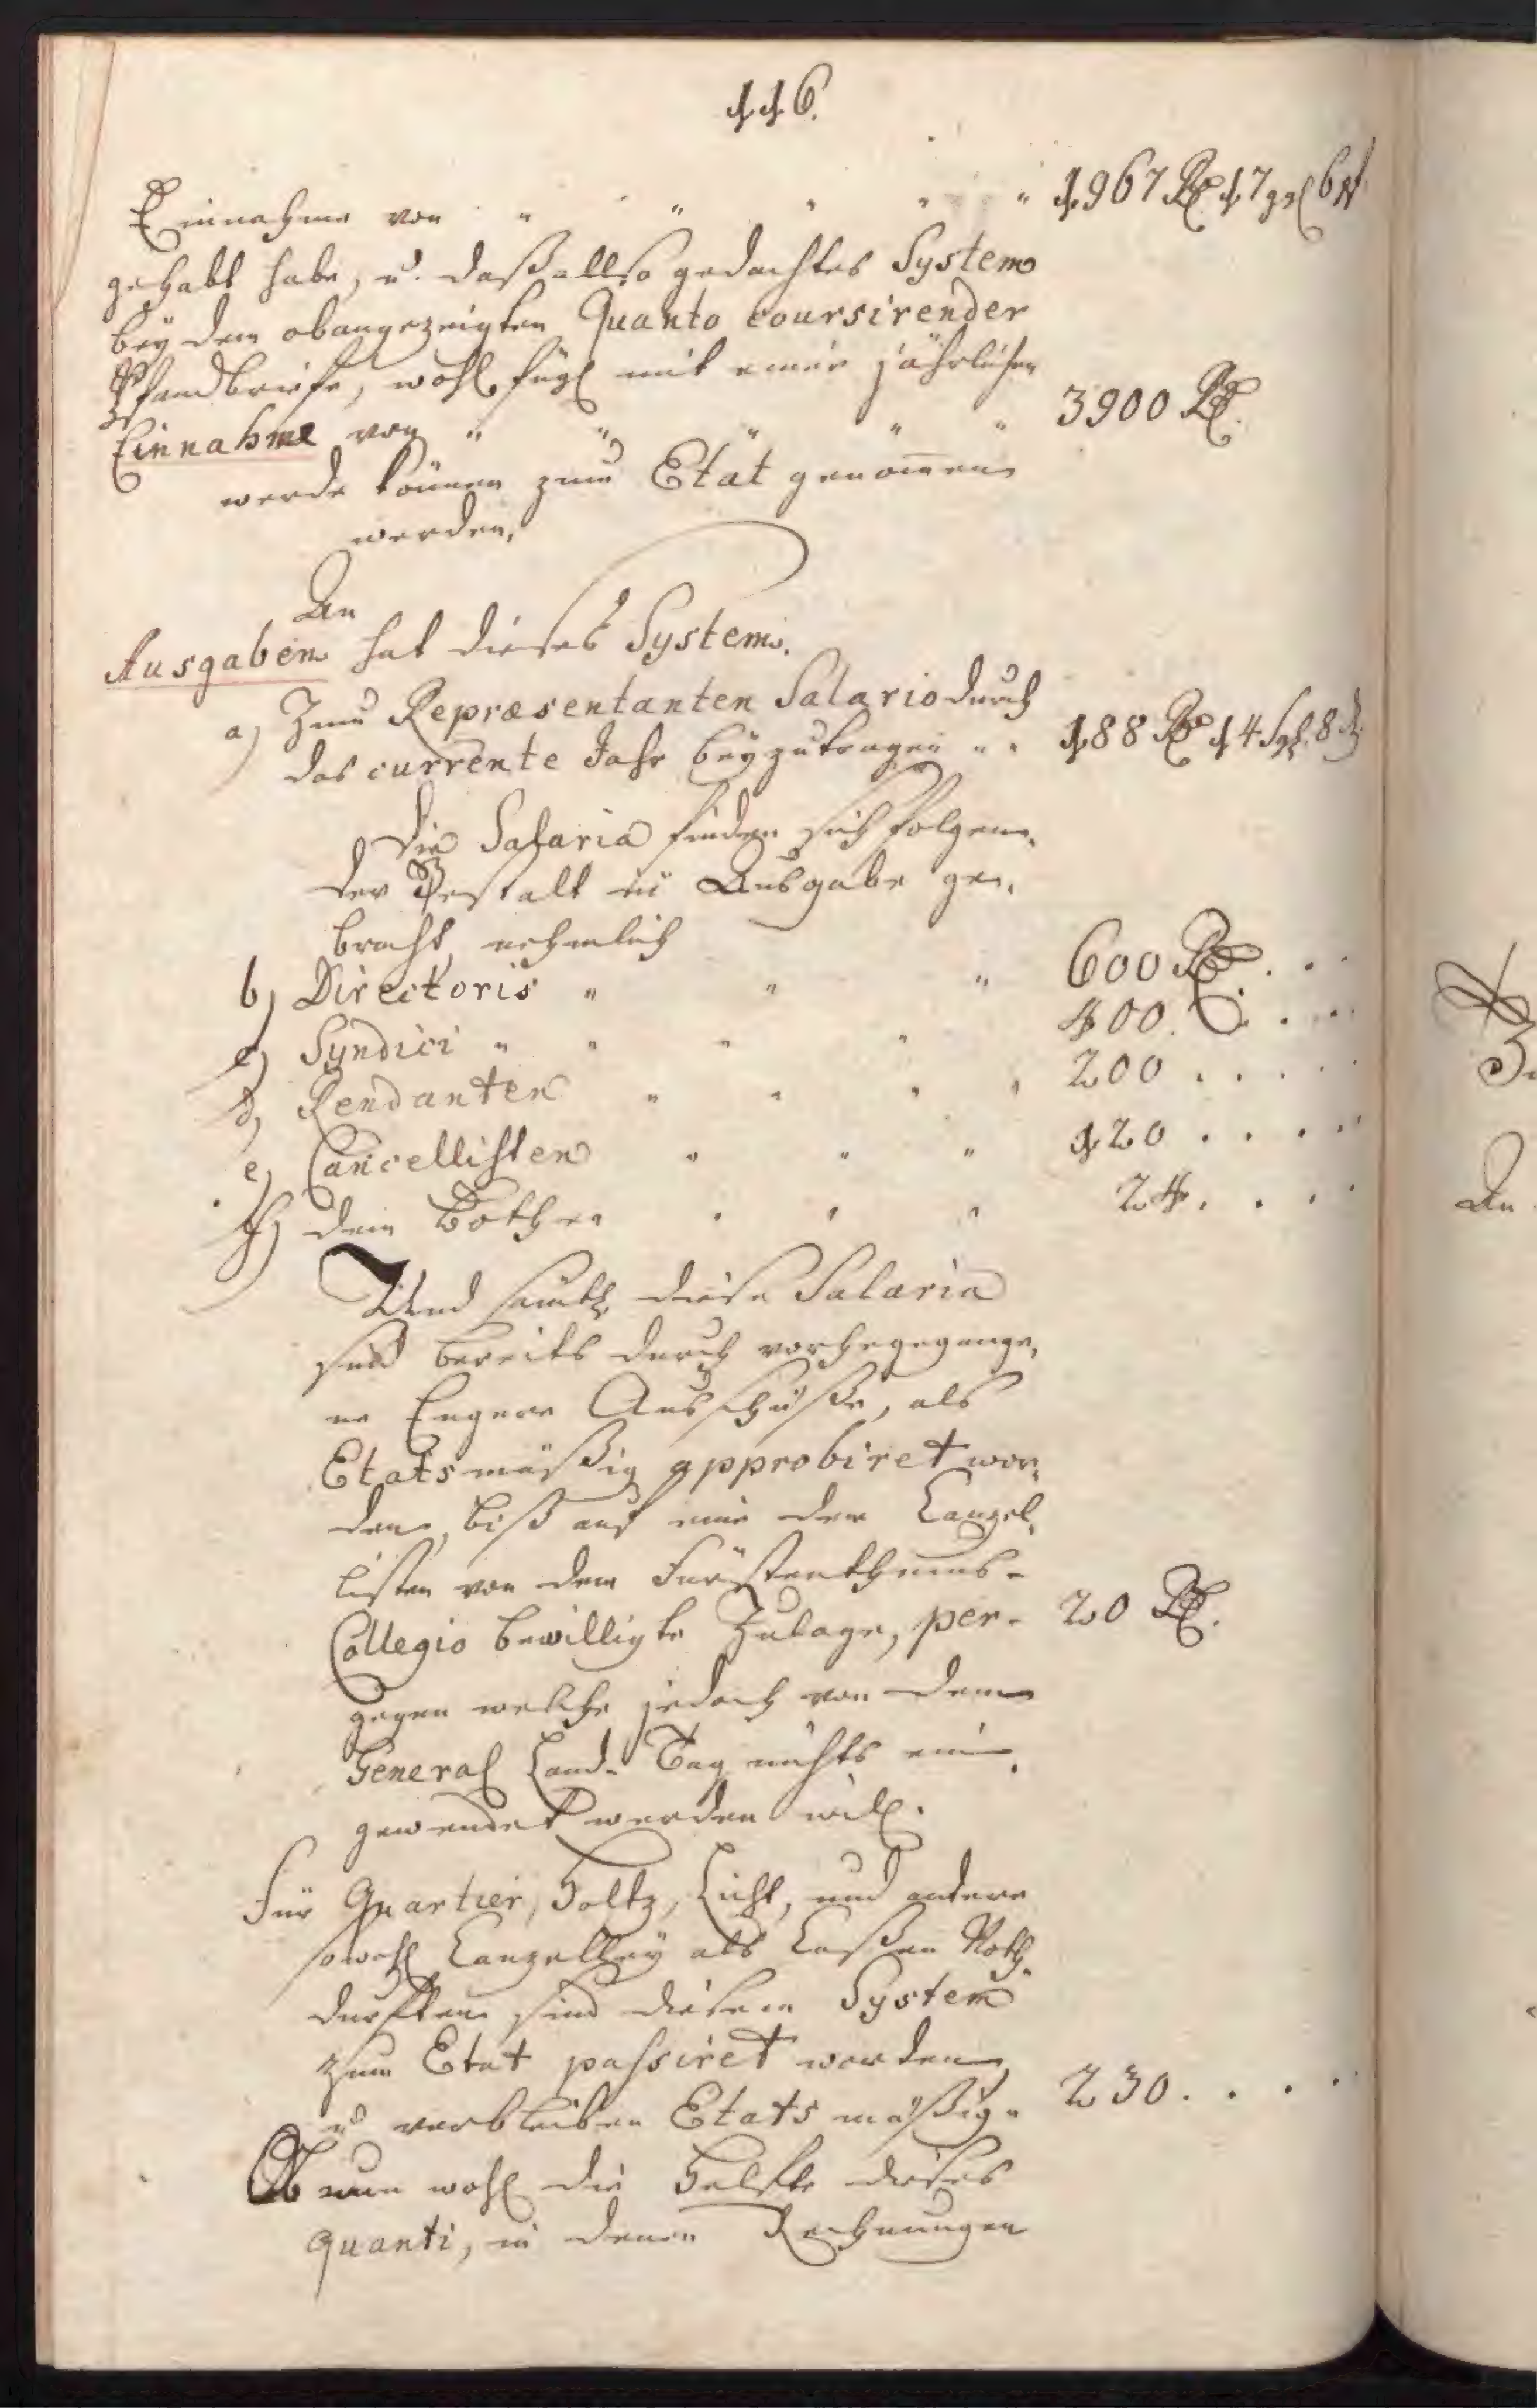 116.
Einnahme von " " " " " 1967 Rthl 17 ggl 6 ₰
gehabt habe, u. daß allso gedachtes System
bey dem obangezeigten Quanto coursirender
Pfandbriefe, wohl fügl mit einer jährlichen
Einnahme von " " " " " 3900 Rthl.
werde können zum Etat genom̄en
werden.
An
Ausgaben hat dieses System.
a) Zum Repræsentanten Salario durch
das currente Jahr beyzutragen " " 188 Rthl 14 Sgl. 8 ₰
Die Salaria finden sich folgen-
der Gestalt in Ausgabe ge-
bracht, nehmlich
b) Directoris " " " 600 Rthl . . .
c) Syndici " " " " 400. . . .
d) Rendanten " " " " 200 . . . . .
e) Cancellisten " " " 120 . . . . .
f) dem Bothen " " " 24. . . .
Und sämtl. diese Salaria
sind bereits durch vorhergegange-
ne Engere Ausschüße, als
Etatsmäßig approbiret wor-
den, biß auf eine dem Canzel-
listen von dem Fürstenthums-
Collegio bewilligte Zulage, per- 20 Rthl.
gegen welche jedoch von dem
General Land-Tag nichts ein-
gewendet werden will.
Für Quartier, Holtz, Licht, und andere
sowohl Canzelley als Caßen Noth-
durfften sind diesem System
zum Etat passiret worden,
u. verbleiben Etats mäßig " 230. . . . .
Ob nun wohl die Helfte dieses
quanti, in denen Rechnungen
An